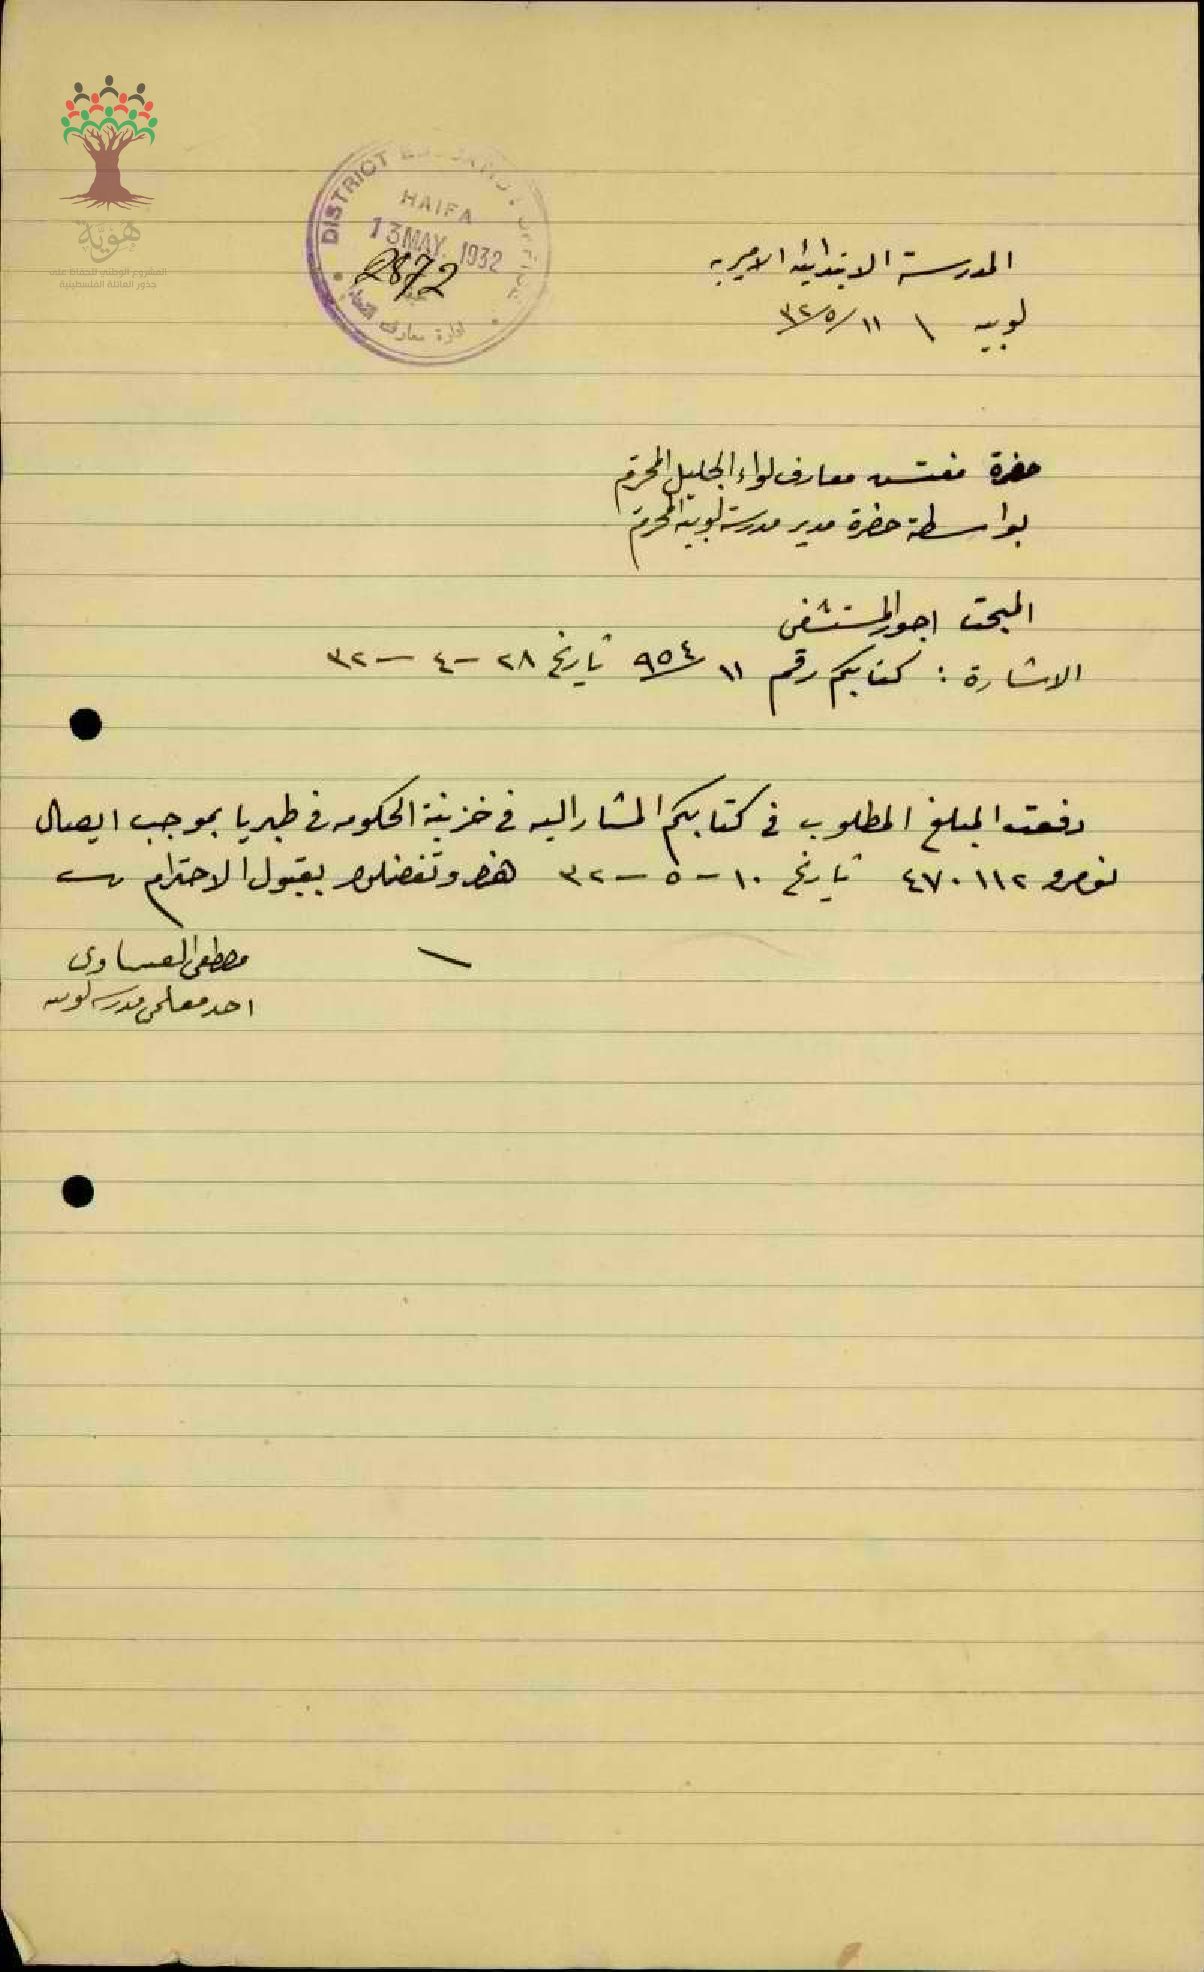 هوية
المشروع الوطني للحفاظ على
جذور العائلة الفلسطينية
DISTRICT EDUCATION OFFICE
HAIFA
13 MAY. 1932
2872
ادارة معارف
المدرسة الابتدائية الاميرية
لوبيه \ ١١/٥/٣٢
حضرة مفتش معارف لواء الجليل المحترم
بواسطة حضرة مدير مدرسة لوبية المحترم
المبحث اجور المستشفى
الاشارة : كتابكم رقم ١١/٩٥٤ تاريخ ٢٨-٤-٣٢
دفعت المبلغ المطلوب في كتابكم المشار اليه في خزينة الحكومه في طبريا بموجب ايصال
نومرو ٤٧٠١١٢ تاريخ ١٠-٥-٣٢ هذا وتفضلوا بقبول الاحترام
مصطفى العيساوي
احد معلمي مدرسة لوبيه